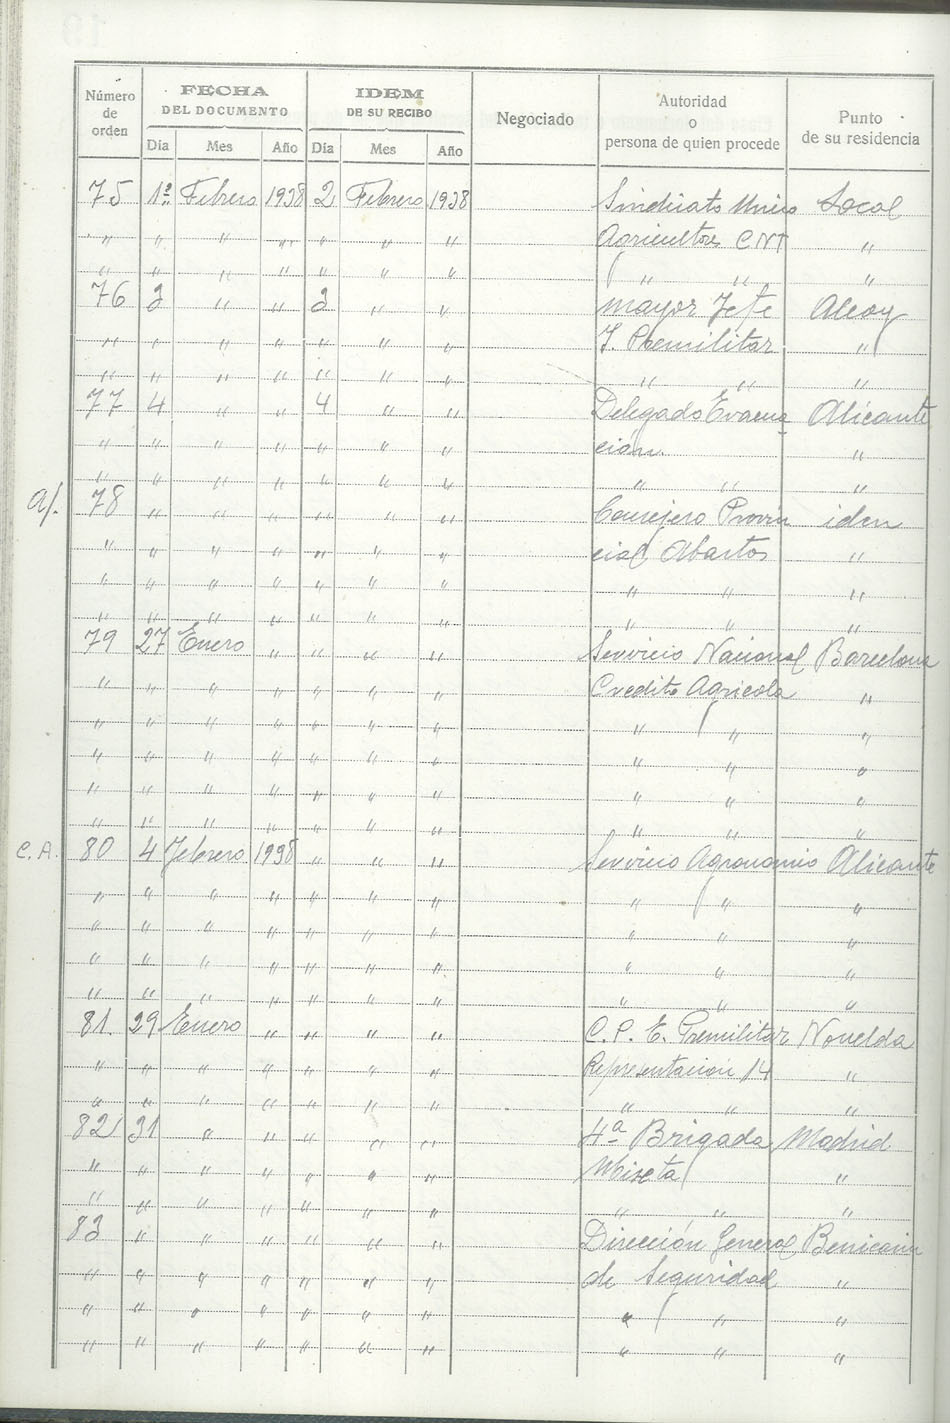 Número de orden FECHA DEL DOCUMENTO IDEM DE SU RECIBO Negociado Autoridad o persona de quien procede Punto de su residencia
Día Mes Año Día Mes Año
75 1º Febrero 1938 2 Febrero 1938 Sindicato Unico Local
" " " " " " " Agricultores CNT "
" " " " " " " " " "
76 3 " " 3 " " Mayor Jefe Alcoy
" " " " " " " I. Premilitar "
" " " " " " " " " "
77 4 " " 4 " " Delegado Evacua Alicante
" " " " " " " ción. "
" " " " " " " " " "
a/. 78 " " " " " " Consejero Provin idem
" " " " " " " cial Abastos "
" " " " " " " " " "
" " " " " " " " " "
79 27 Enero " " " " Servicio Nacional Barcelona
" " " " " " " Credito Agricola "
" " " " " " " " " "
" " " " " " " " " "
" " " " " " " " " "
" " " " " " " " " "
C.A. 80 4 Febrero 1938 " " " Servicio Agronomio Alicante
" " " " " " " " " "
" " " " " " " " " "
" " " " " " " " " "
" " " " " " " " " "
81 29 Enero " " " " C. P. E. Premilitar Novelda
" " " " " " " Representacion 14 "
" " " " " " " " " "
82 31 " " " " " 4ª Brigada Madrid
" " " " " " " Mixta "
" " " " " " " " " "
83 " " " " " " Dirección General Benicasim
" " " " " " " de Seguridad "
" " " " " " " " " "
" " " " " " " " " "